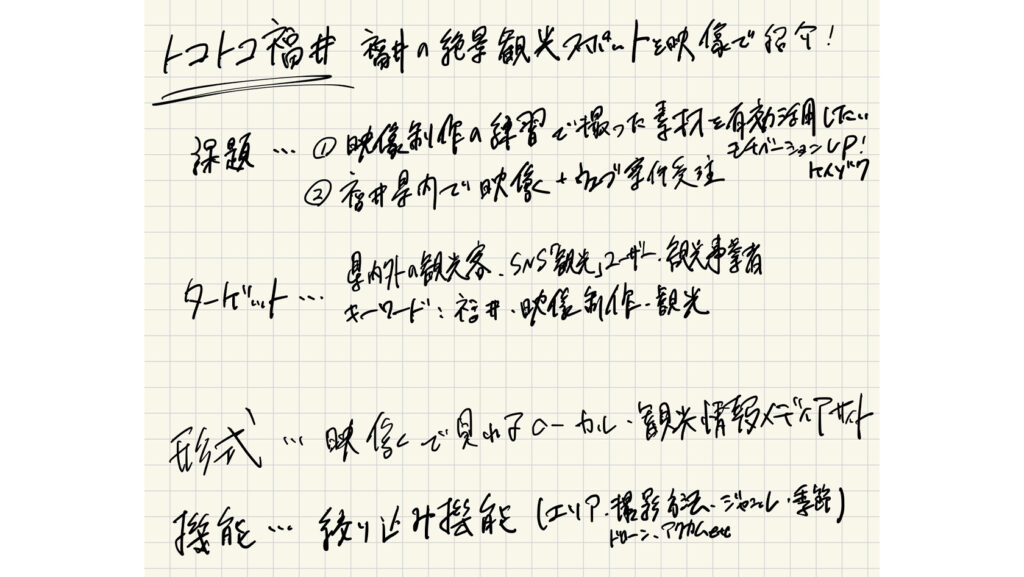 トコトコ福井 福井の絶景観光スポットを映像で紹介!
課題 … ① 映像制作の練習で撮った素材を有効活用したい
モチベーションUP!
② 福井県内で映像 + ウェブ案件受注
ターゲット … 県内外の観光客、SNS「観光」ユーザー、観光事業者
キーワード:福井・映像制作・観光
形式 … 映像で見れるローカル・観光情報メディアサイト
機能 … 絞り込み機能 (エリア・撮影方法・ジャンル・季節)
ドローン、アクカムetc